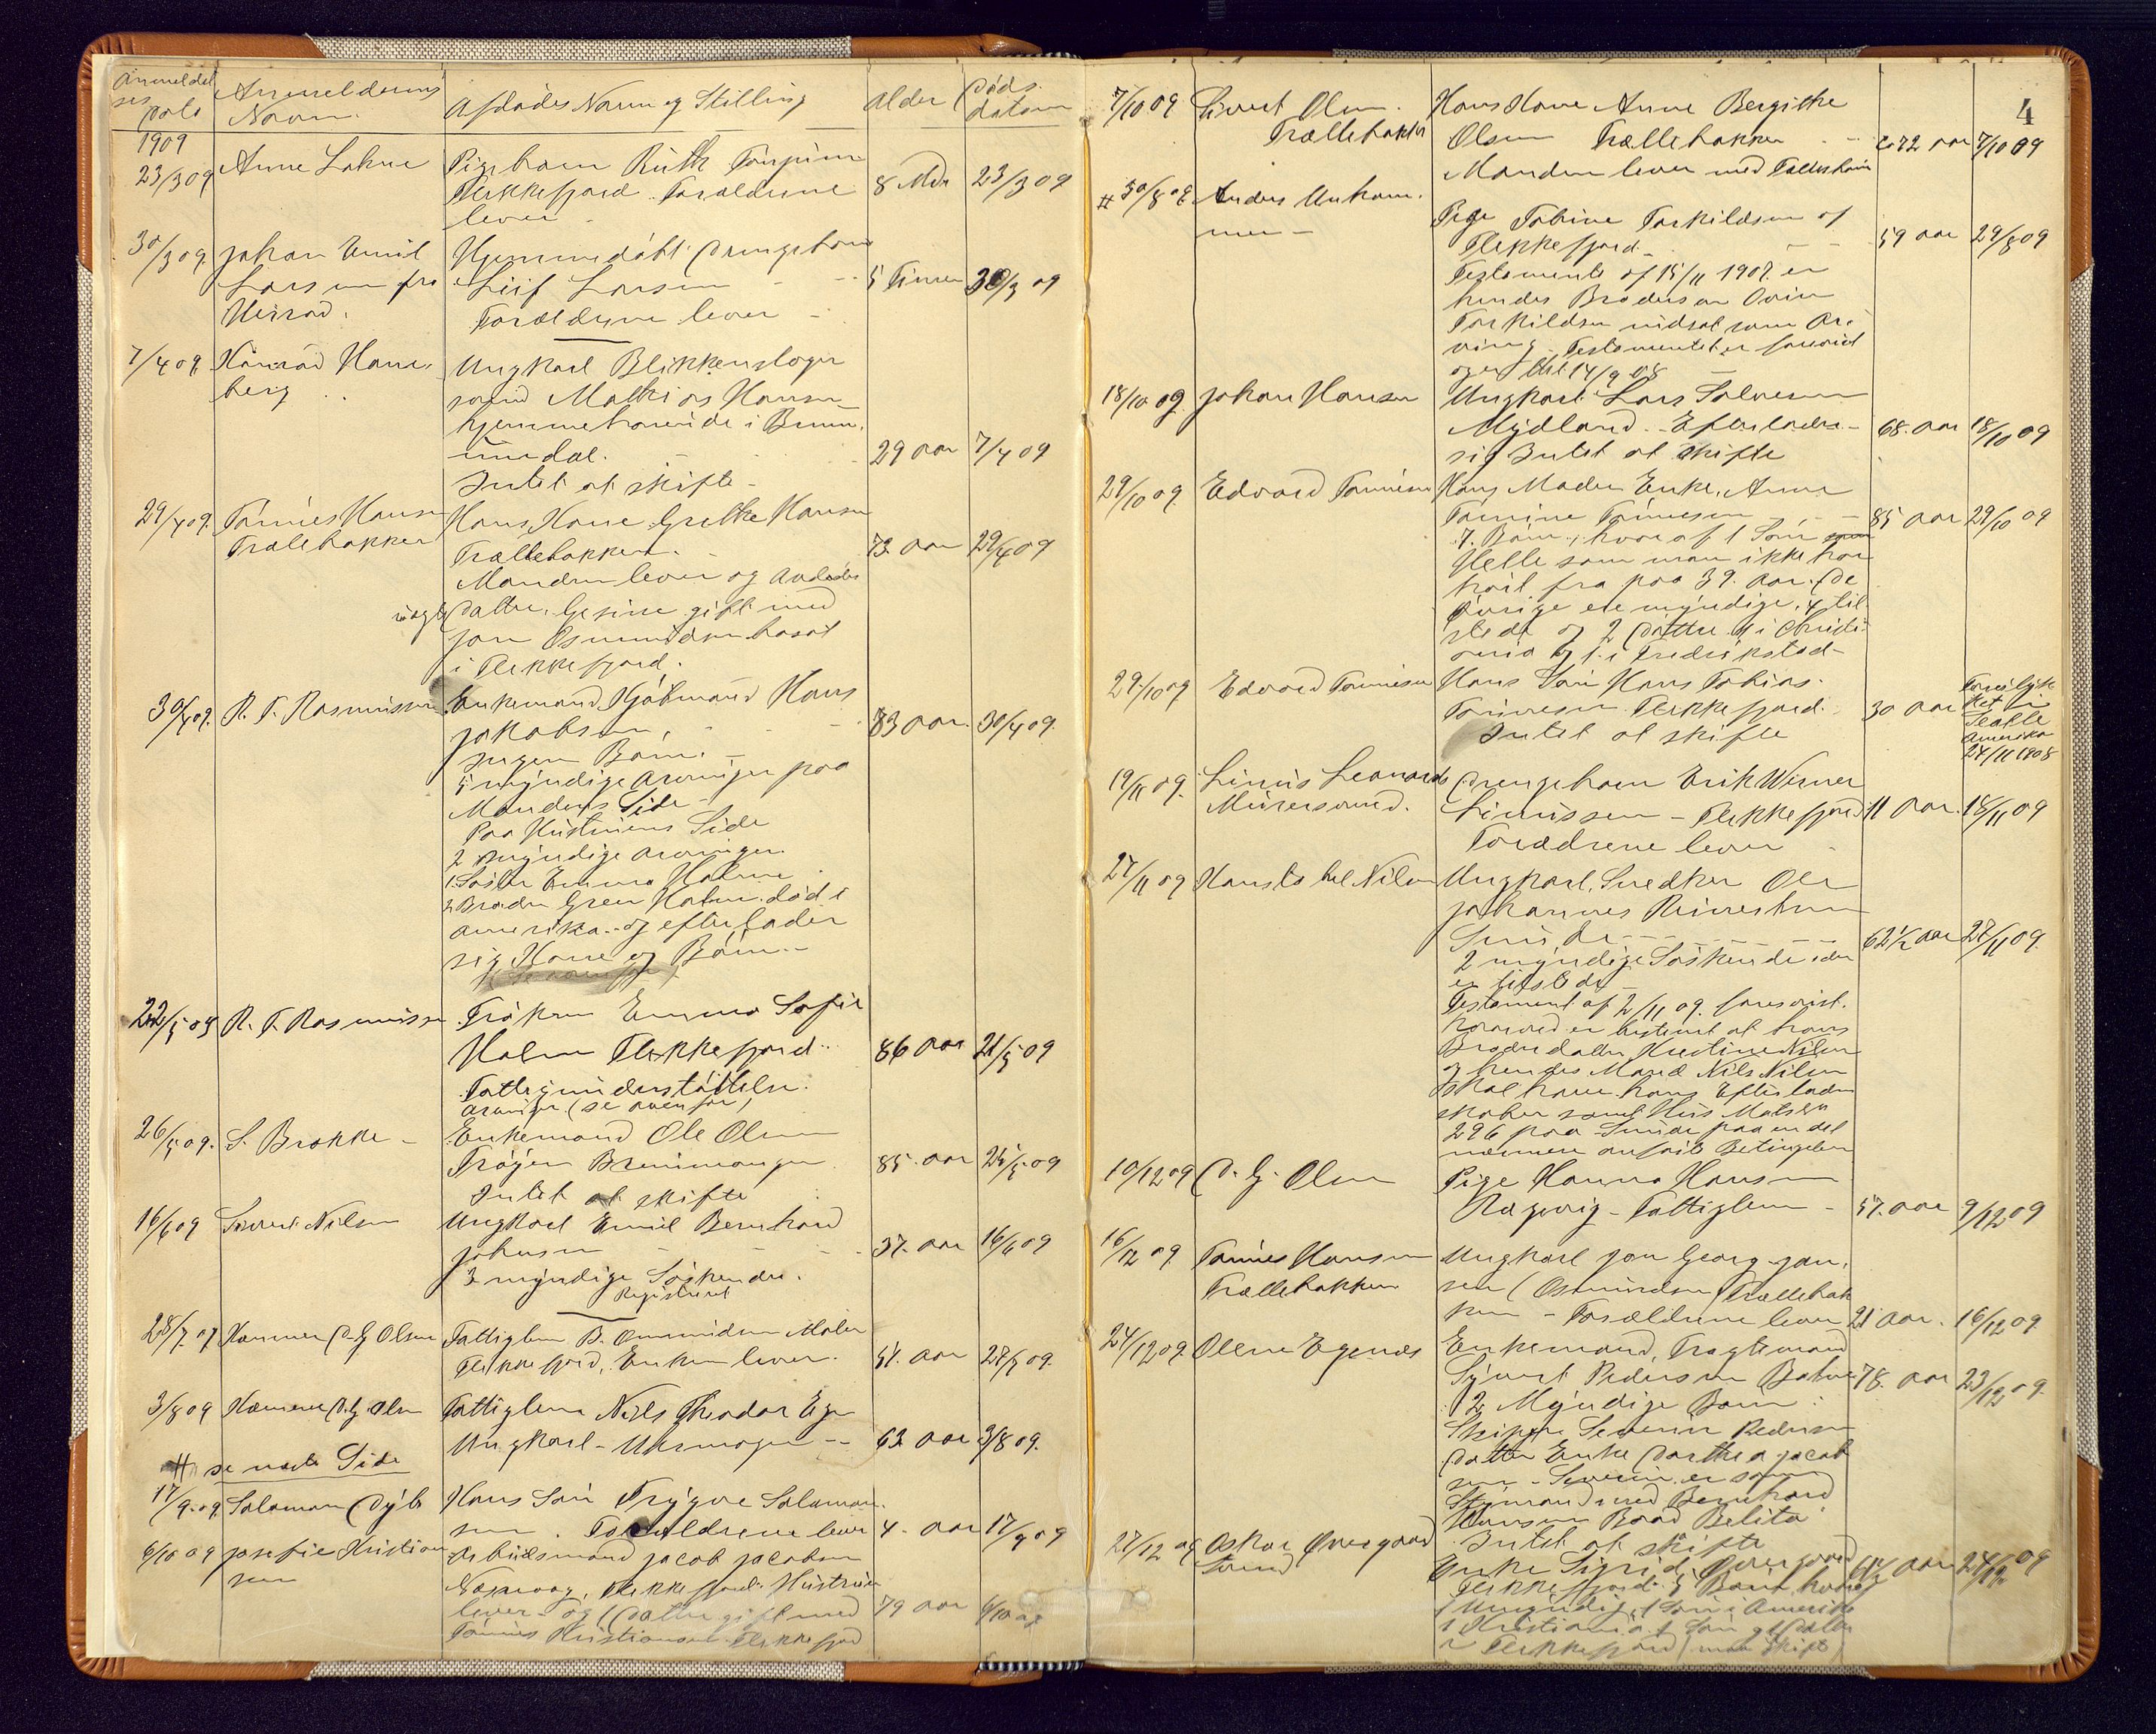 Anmeldel
ses
Dato
Anmelderens
Navn.
Afdødes Navn og Stilling
Alder
Døds.
datum
1909
23/3 09 Anne Lohne Pigebarn Ruth
Flekkefjord. Forældrene 8 Mdr 23/3 09
lever
30/3 09. Johan Emil Hjemmedøbt Drengebarn
Larsen fra Leif Larsen 5 Timer 30/3 09
Forældrene lever
7/4 09. Konrad Hans Ungkarl Blikkenslager
berg svend Mathias Hansen
hjemmehørende i Brum.
undal. 29 Aar 7/4 09
Intet at skifte
29/4 09. Tønnes Hansen Hans Kone Grethe Hansen
Trællebakken Trællebakken. 73 Aar 29/4 09
Manden lever og Avdødes
Datter Gesine gift med
Jan Osmundsen bosat
i Flekkefjord.
30/4 09. R. T. Rasmussen Enkemand Kjøbmand Hans
Jakobsen 83 Aar. 30/4 09.
Ingen Børn.
5 myndige Arvinger paa
Mandens Side
Paa Hustruens Side
2 myndige Arvinger
1. Søster Emma Holm
2 Broder Green Holm. død i
Amerika og efterlader
sig Kone og Børn.
22/5 09 R. T. Rasmussen Frøken Emma Sofie
Holm Flekkefjord 86 Aar 21/5 09
Fattigunderstøttelse.
Arvinger (se ovenfor)
26/5 09. S. Brakke Enkemand Ole Olsen
Trøyen 85. Aar 25/5 09
Intet at skifte
16/6 09 Nilsen Ungkarl Emil Bernhard
Johnsen 37. Aar 16/6 09
3 myndige Søskende.
Registreret
28/7. 09 Kæmner D. G Olsen Fattiglem B. Osmundsen Maler
Flekkefjord, Enken lever. 51. Aar 27/7 09.
3/8 09 Kæmner D. G. Olsen Fattiglem Nils Theodor
Ungkarl 63 Aar 3/8 09.
# se neste Side
17/9. 09. Salamon Dybs Hans Søn Trygve Salamon
sen. Forældrene lever 4. Aar 17/9 09
6/10 09 Josefie Kristian Arbeidsmand Jacob Jacobsen
sen Flekkefjord. Hustruen
lever og 1 Datter gift med 79 Aar 6/10 09
Tønnes Kristiansen Flekkefjord
4
7/10 09 Sivert Olsen. Hans Kone Anne Bergithe
Trællebakken Olsen Trællebakken 72 Aar 7/10 09
Manden lever med Fællesbørn
# 30/8 09. Anders Unham. Pige Tobine Torkildsen af
mer Flekkefjord 59 Aar 29/8 09
Testamente af 15/11 1907 er
hendes Brodersøn
Torkildsen indsat som Ar-
ving. Testamentet er forevist
14/9 08
18/10 09. Johan Hansen Ungkarl Lars Salvesen
Mydland. Efterlader 68. Aar 18/10 09
sig Intet at skifte
29/10 09. Edvard Tønnesen Hans Moder Enke, Anne
Tomine Tønnesen 85 Aar 29/10 09
7. Børn, hvoraf 1 Søn
Helle som man ikke har
hørt fra paa 39. Aar. De
øvrige ere myndige, 4 til
stede og 2 Døttre 1 i Christi
ania og 1. i Fredrikstad
29/10 09 Edvard Tønnesen Hans Søn Hans Tobias
Tønnesen Flekkefjord. 30 Aar
Intet at skifte
Forulyk
ket i
Seattle
Amerika
24/11 1908
19/11 09. Linus Leonards Drengebarn Erik Werner
Murersvend. Linussen - Flekkefjord 11 Aar. 18/11 09
Forældrene lever
27/11 09 Nilsen Ungkarl, Snedker Ole
Johannes
Sunde 62½ Aar 27/11 09.
2 myndige Søskende
er tilstede
Testament af 2/11 09. forevist.
hvorved er bestemt at hans
Broderdatter Kristine Nilsen
og hendes Mand Nils Nilsen
skal have hans Efterladen
skaber samt Hus Matr No
296 paa Sunde paa en del
nærmere anførte Betingelser
10/12 09 D. G. Olsen Pige Hanna Hansen
Rægevig - Fattiglem 57. Aar 9/12 09
16/12 09. Tønnes Hansen Ungkarl Jan Georg Jan.
Trællebakken sen (Osmundsen) Trællebak
ken - Forældrene lever 21 Aar. 16/12 09.
24/12 09. Olene Egenæs Enkemand,
Syvert Pedersen 78. Aar 23/12 09.
2 Myndige Børn:
Skipper Severin Pedersen
Datter Enke Dorthea Jacob
sen - Severin er som
Styrmand med Bernhard
Hansen Baad Belita.
Intet at skifte
27/12 09 Oskar Overgaard Enke Sigrid Overgaard Aar 24/12 09
Flekkefjord. 5 Børn hvoraf
1 Umyndig, 1 Søn i Amerika
1 Kristiania 1 Søn og 1 Datter
i Flekkefjord